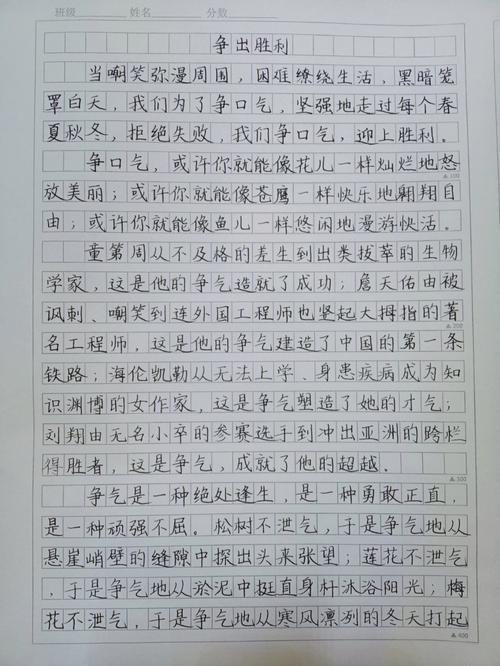 班级 姓名 分数
争出胜利
当嘲笑弥漫周围，困难缭绕生活，黑暗笼
罩白天，我们为了争口气，坚强地走过每个春
夏秋冬，拒绝失败，我们争口气，迎上胜利。
争口气，或许你就能像花儿一样灿烂地怒
放美丽；或许你就能像苍鹰一样快乐地翱翔自
▲100
由；或许你就能像鱼儿一样悠闲地漫游快活。
童第周从不及格的差生到出类拔萃的生物
学家，这是他的争气造就了成功；詹天佑由被
讽刺、嘲笑到连外国工程师也竖起大拇指的著
▲200
名工程师，这是他的争气建造了中国的第一条
铁路；海伦凯勒从无法上学、身患疾病成为知
识渊博的女作家，这是争气塑造了她的才气；
刘翔由无名小卒的参赛选手到冲出亚洲的跨栏
得胜者，这是争气，成就了他的超越.
▲300
争气是一种绝处逢生，是一种勇敢正直，
是一种顽强不屈。松树不泄气，于是争气地从
悬崖峭壁的缝隙中探出头来张望；莲花不泄气
，于是争气地从淤泥中挺直身杆沐浴阳光；梅
花不泄气，于是争气地从寒风凛冽的冬天打起
▲400